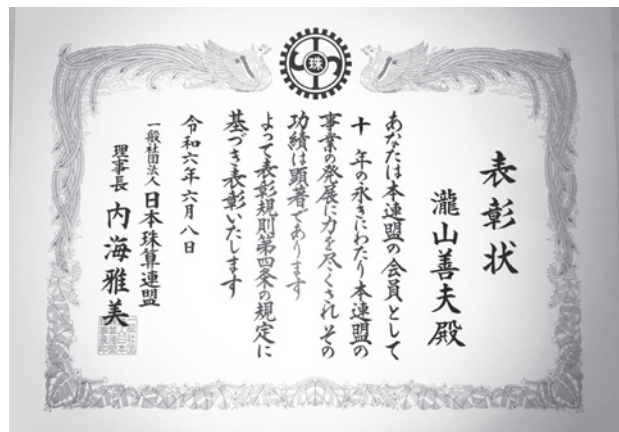 表彰状
瀧山善夫殿
あなたは本連盟の会員として
十年の永きにわたり本連盟の
事業の発展に力を尽くされその
功績は顕著であります
よって表彰規則第四条の規定に
基づき表彰いたします
令和六年六月八日
一般社団法人日本珠算連盟
理事長 内海雅美
珠